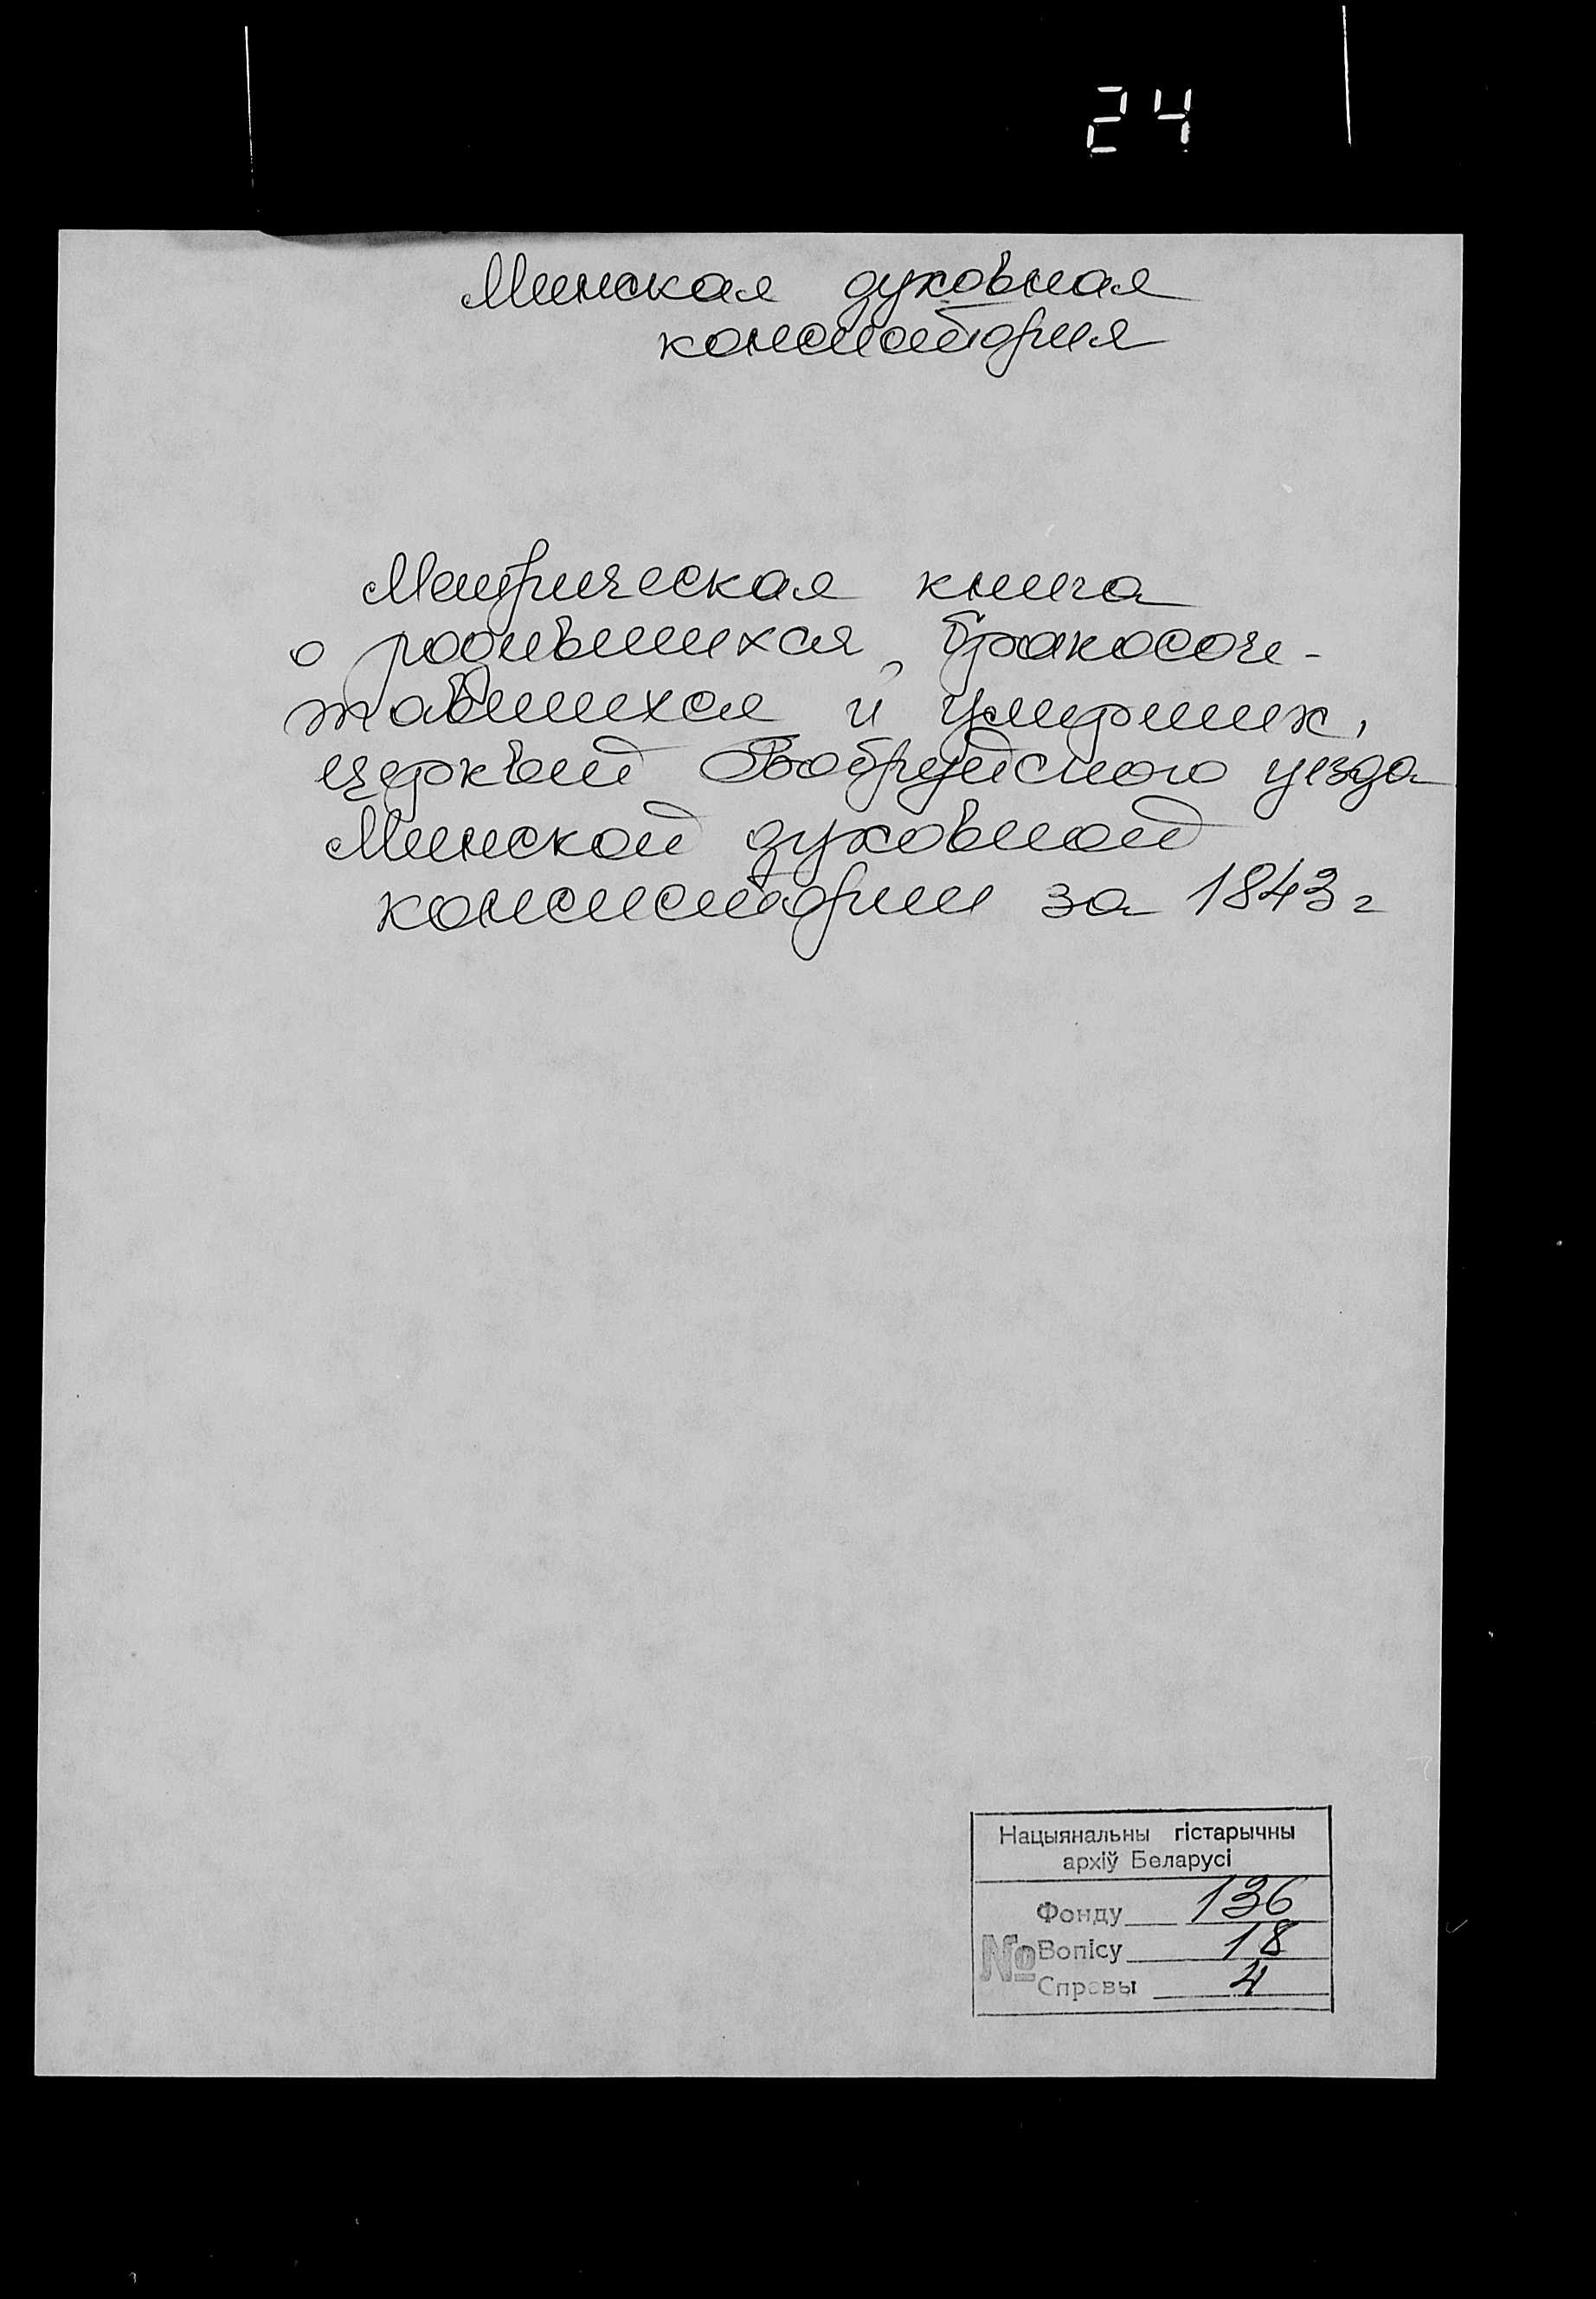 24
Минская духовная
консистория
Метрическая книга
о родившихся, бракосоче-
тавшихся и умерших,
церквей Бобруйского уезда
Минской духовной
консистории за 1843 г
Нацыянальны гістарычны
архіў Беларусі
Фонду 136
№ Вопісу 18
Справы 4